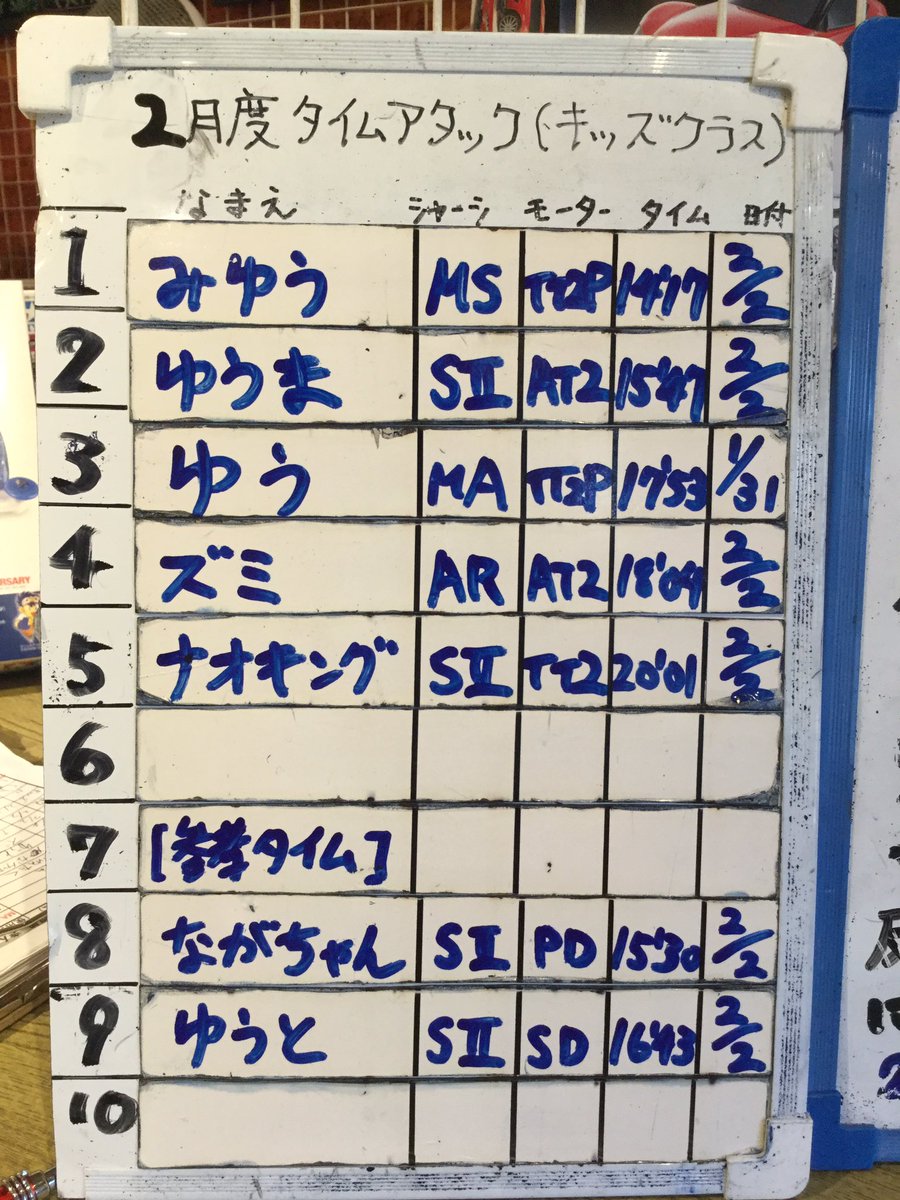 2月度タイムアタック(キッズクラス)
なまえ シャーシ モーター タイム 日付
1 みゆう MS TT2P 14'17 2/2
2 ゆうま SⅡ AT2 15'47 2/2
3 ゆう MA TT2P 17'53 1/31
4 ズミ AR AT2 18'04 2/2
5 ナオキング SⅡ TT2 20'01 2/2
6
7 [参考タイム]
8 ながちゃん SⅡ PD 15'30 2/2
9 ゆうと SⅡ SD 16'43 2/2
10